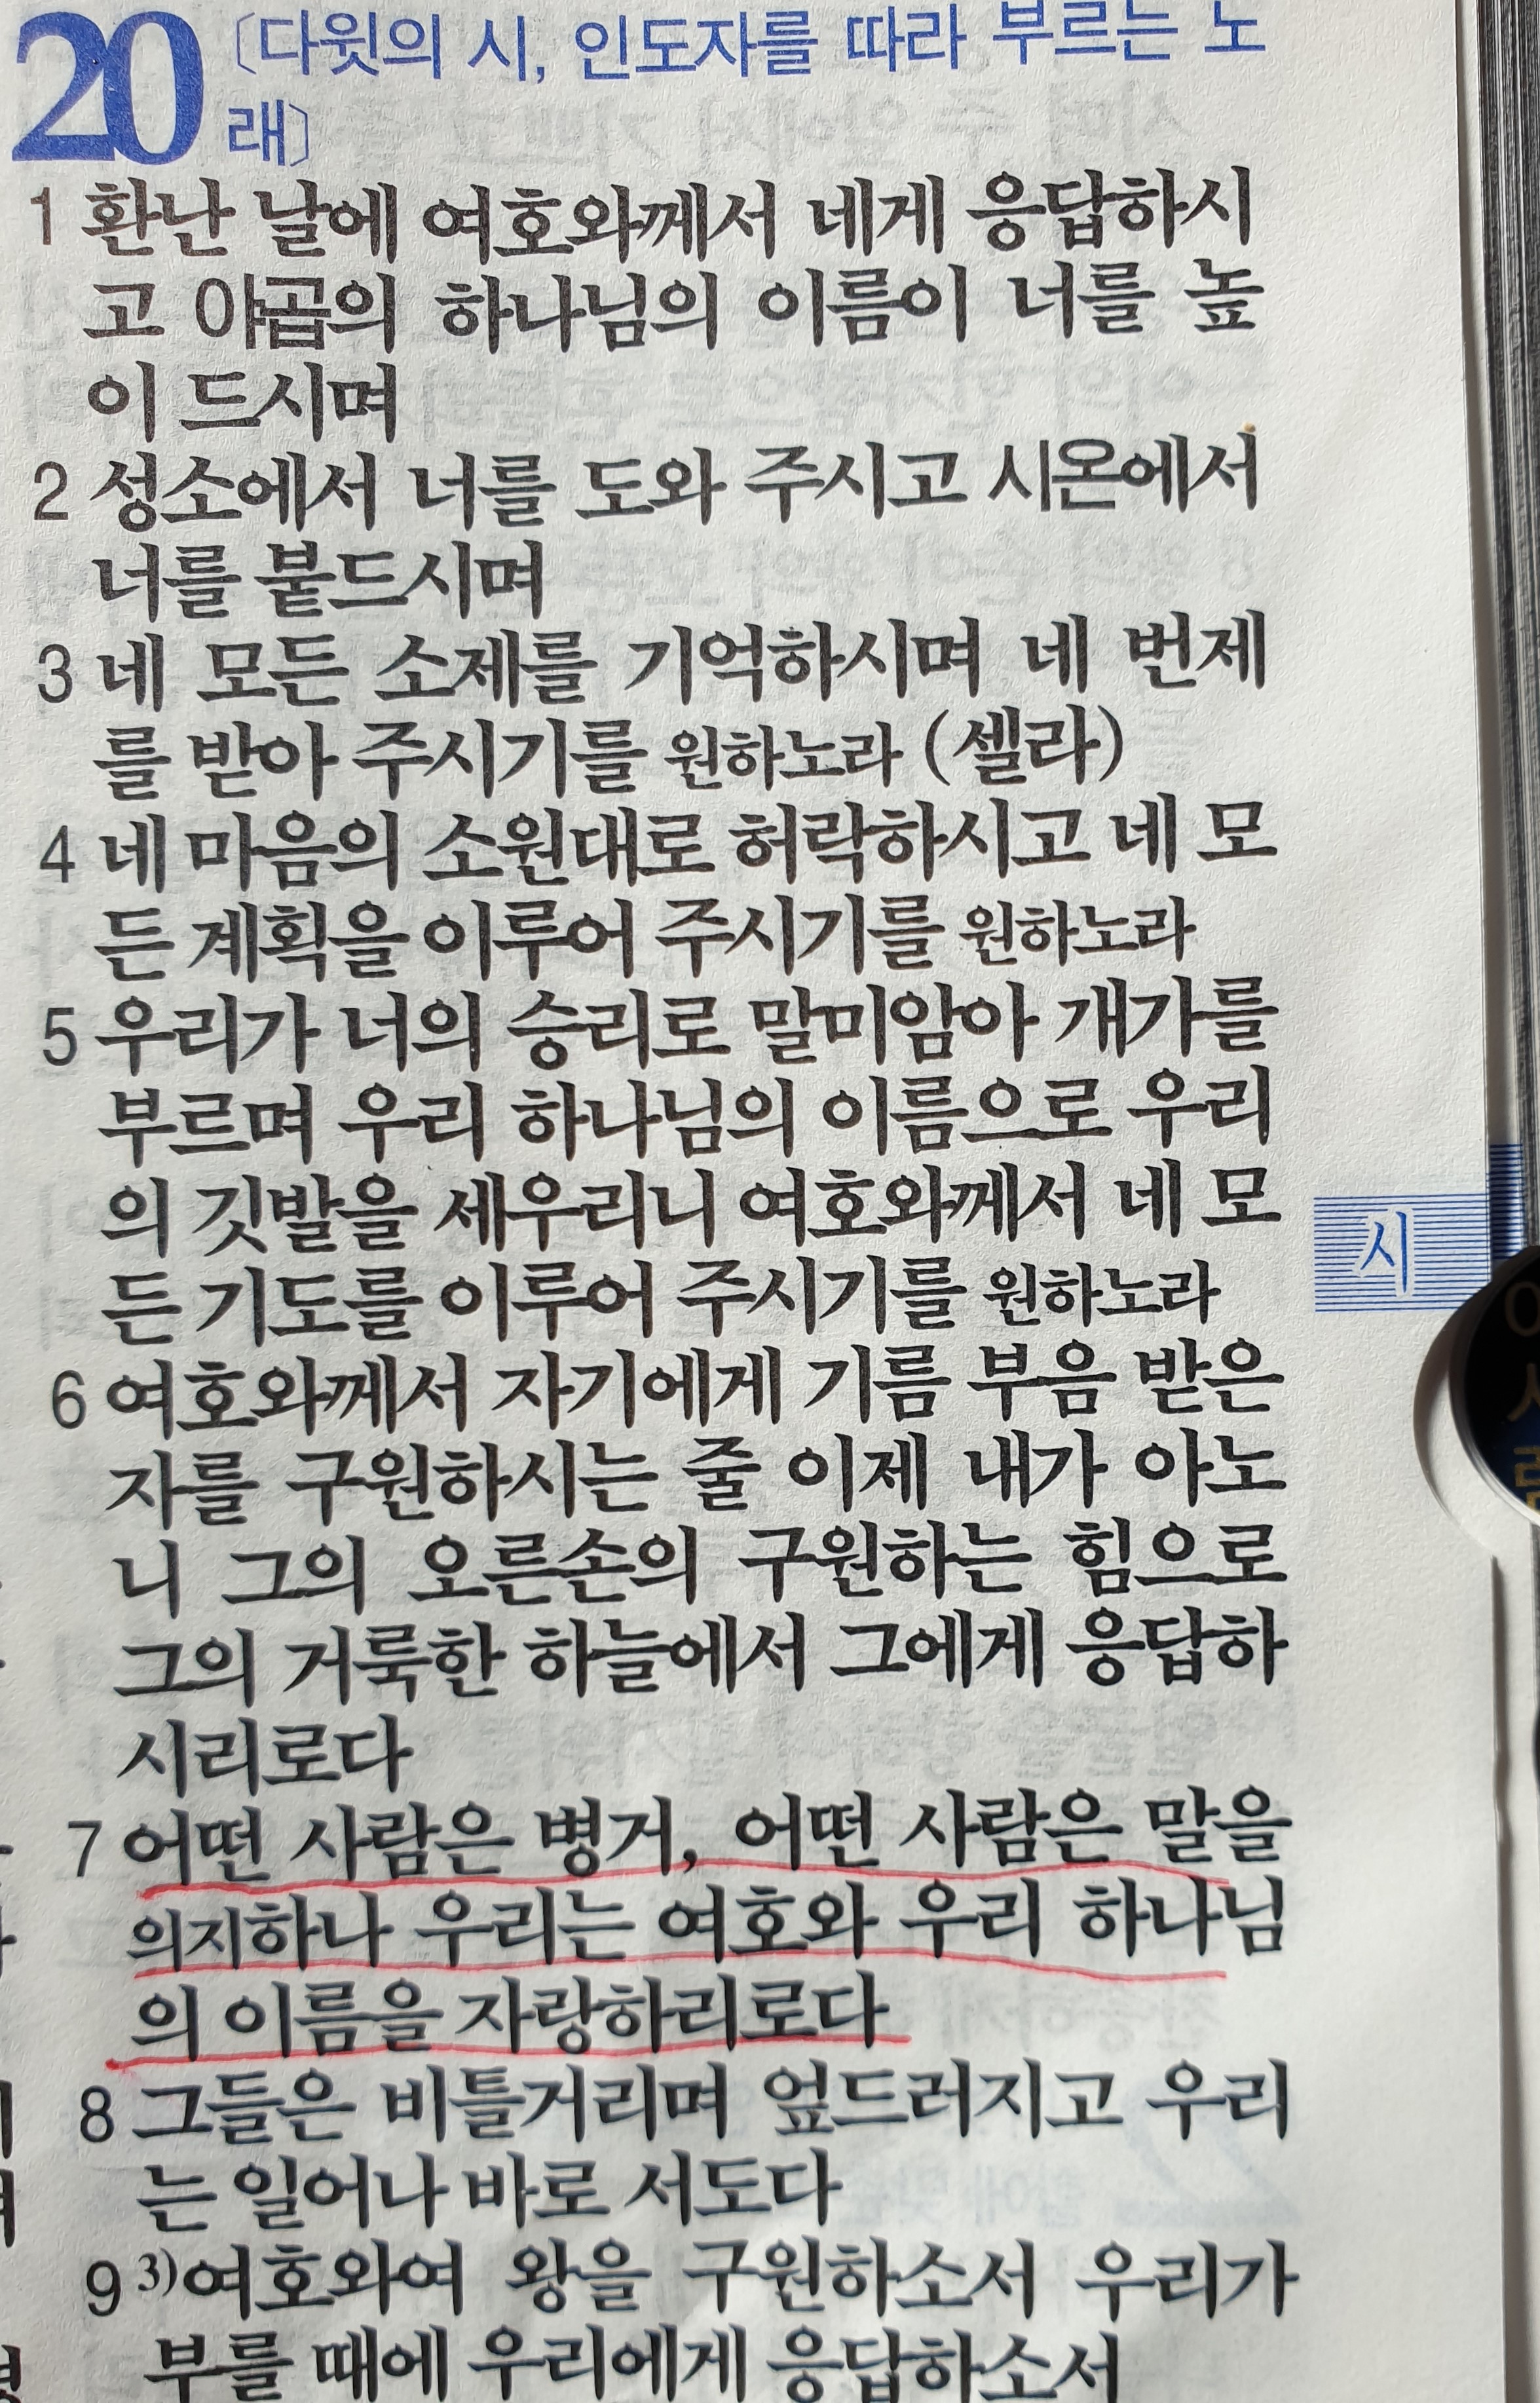 20 〔다윗의 시, 인도자를 따라 부르는 노
래〕
1 환난 날에 여호와께서 네게 응답하시
고 야곱의 하나님의 이름이 너를 높
이 드시며
2 성소에서 너를 도와 주시고 시온에서
너를 붙드시며
3 네 모든 소제를 기억하시며 네 번제
를 받아 주시기를 원하노라 (셀라)
4 네 마음의 소원대로 허락하시고 네 모
든 계획을 이루어 주시기를 원하노라
5 우리가 너의 승리로 말미암아 개가를
부르며 우리 하나님의 이름으로 우리
의 깃발을 세우리니 여호와께서 네 모
든 기도를 이루어 주시기를 원하노라
6 여호와께서 자기에게 기름 부음 받은
자를 구원하시는 줄 이제 내가 아노
니 그의 오른손의 구원하는 힘으로
그의 거룩한 하늘에서 그에게 응답하
시리로다
7 어떤 사람은 병거, 어떤 사람은 말을
의지하나 우리는 여호와 우리 하나님
의 이름을 자랑하리로다
8 그들은 비틀거리며 엎드러지고 우리
는 일어나 바로 서도다
9 3)여호와여 왕을 구원하소서 우리가
부를 때에 우리에게 응답하소서
시